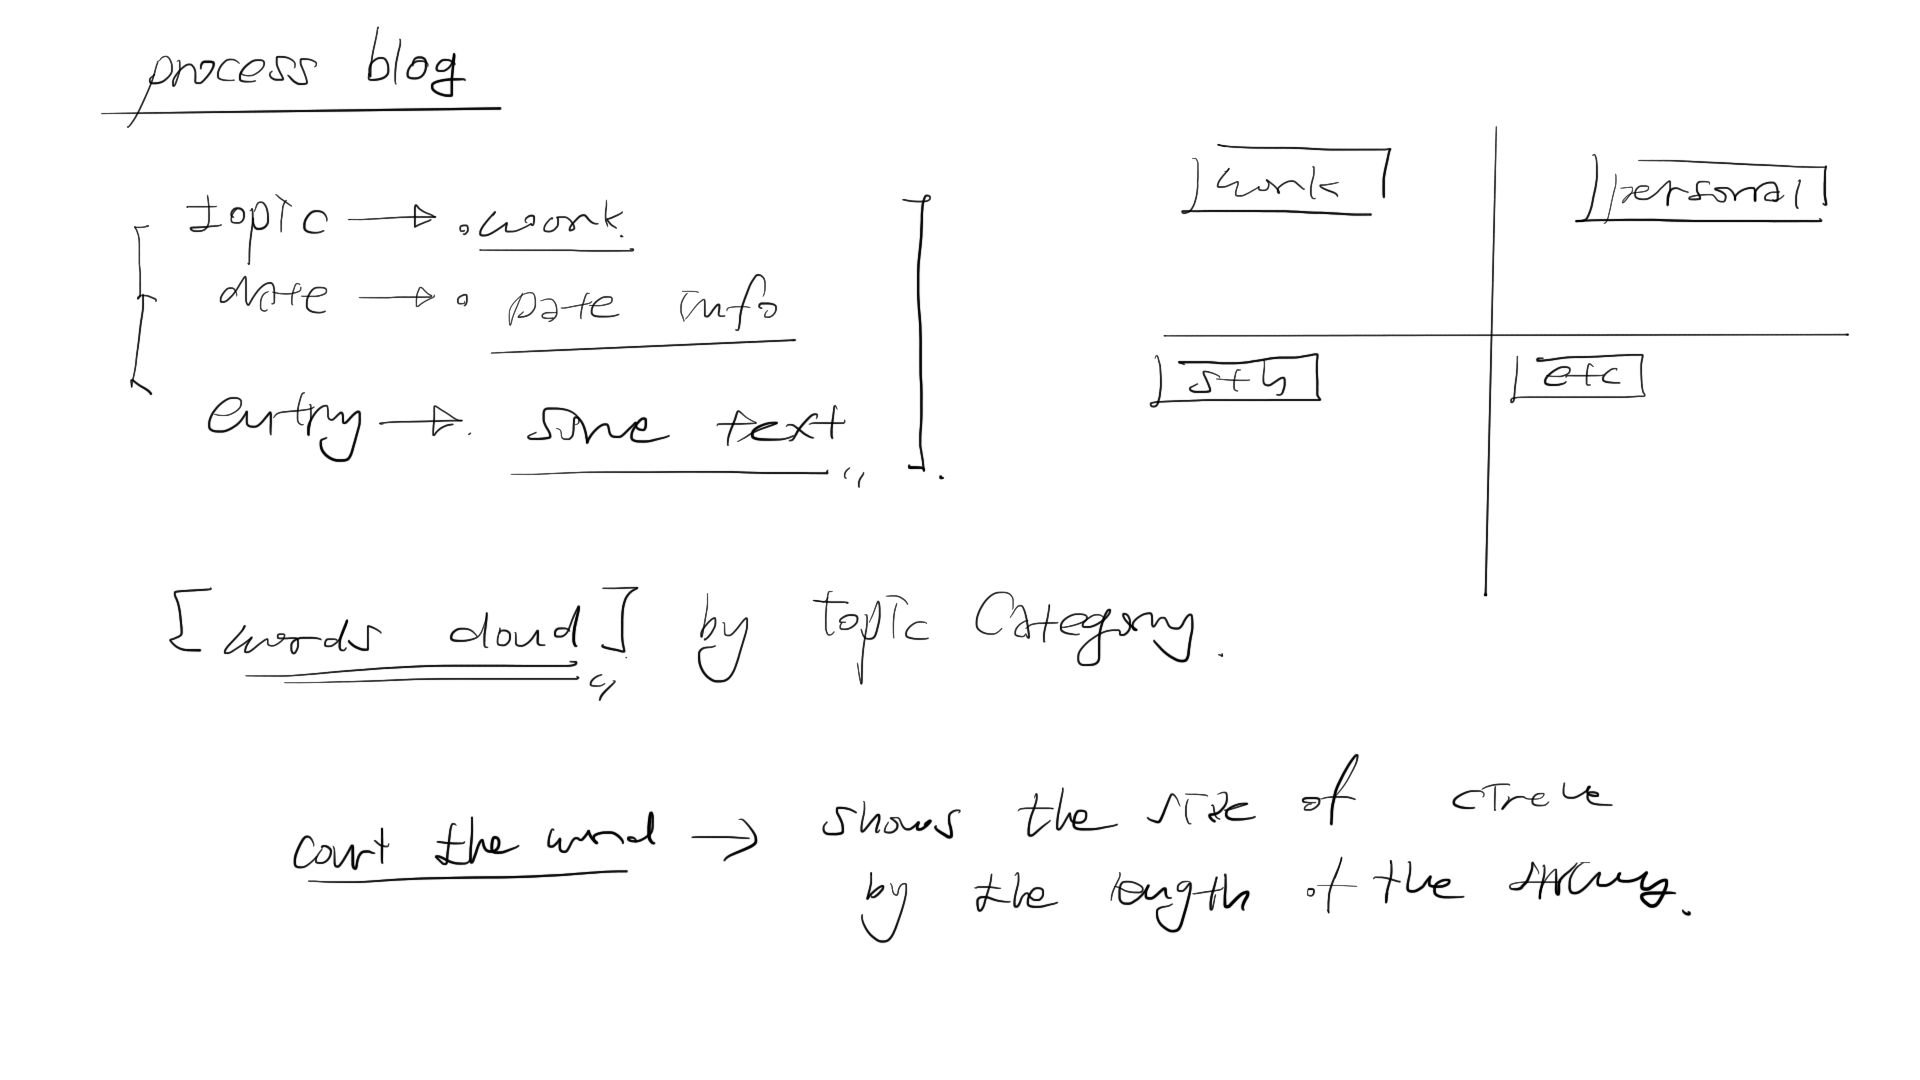 process blog
topic → work
date → Date info
entry → some text
work
personal
sth
etc
[words cloud] by topic category.
count the word → shows the size of circle
by the length of the